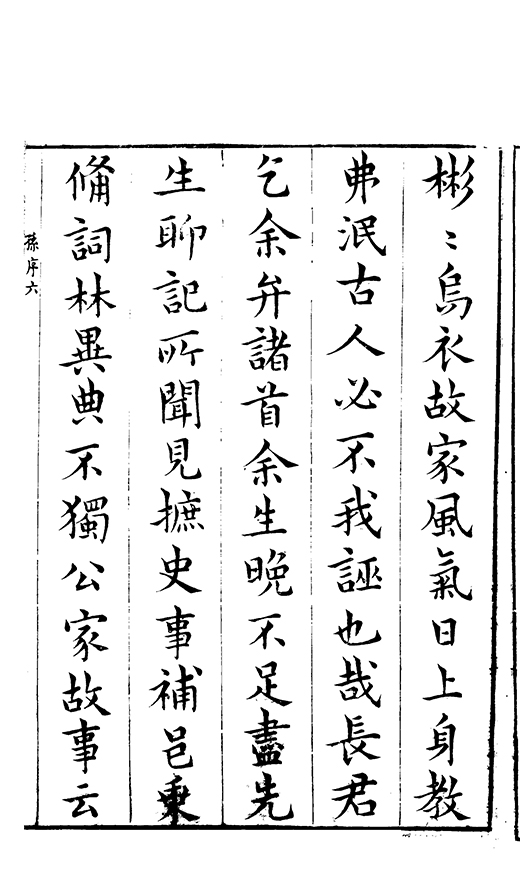 彬〻烏衣故家風氣日上身教
弗泯古人必不我誣也哉長君
乞余弁諸首余生晚不足盡先
生聊記所聞見摭史事補邑乗
俻詞林異典不獨公家故事云
孫序六